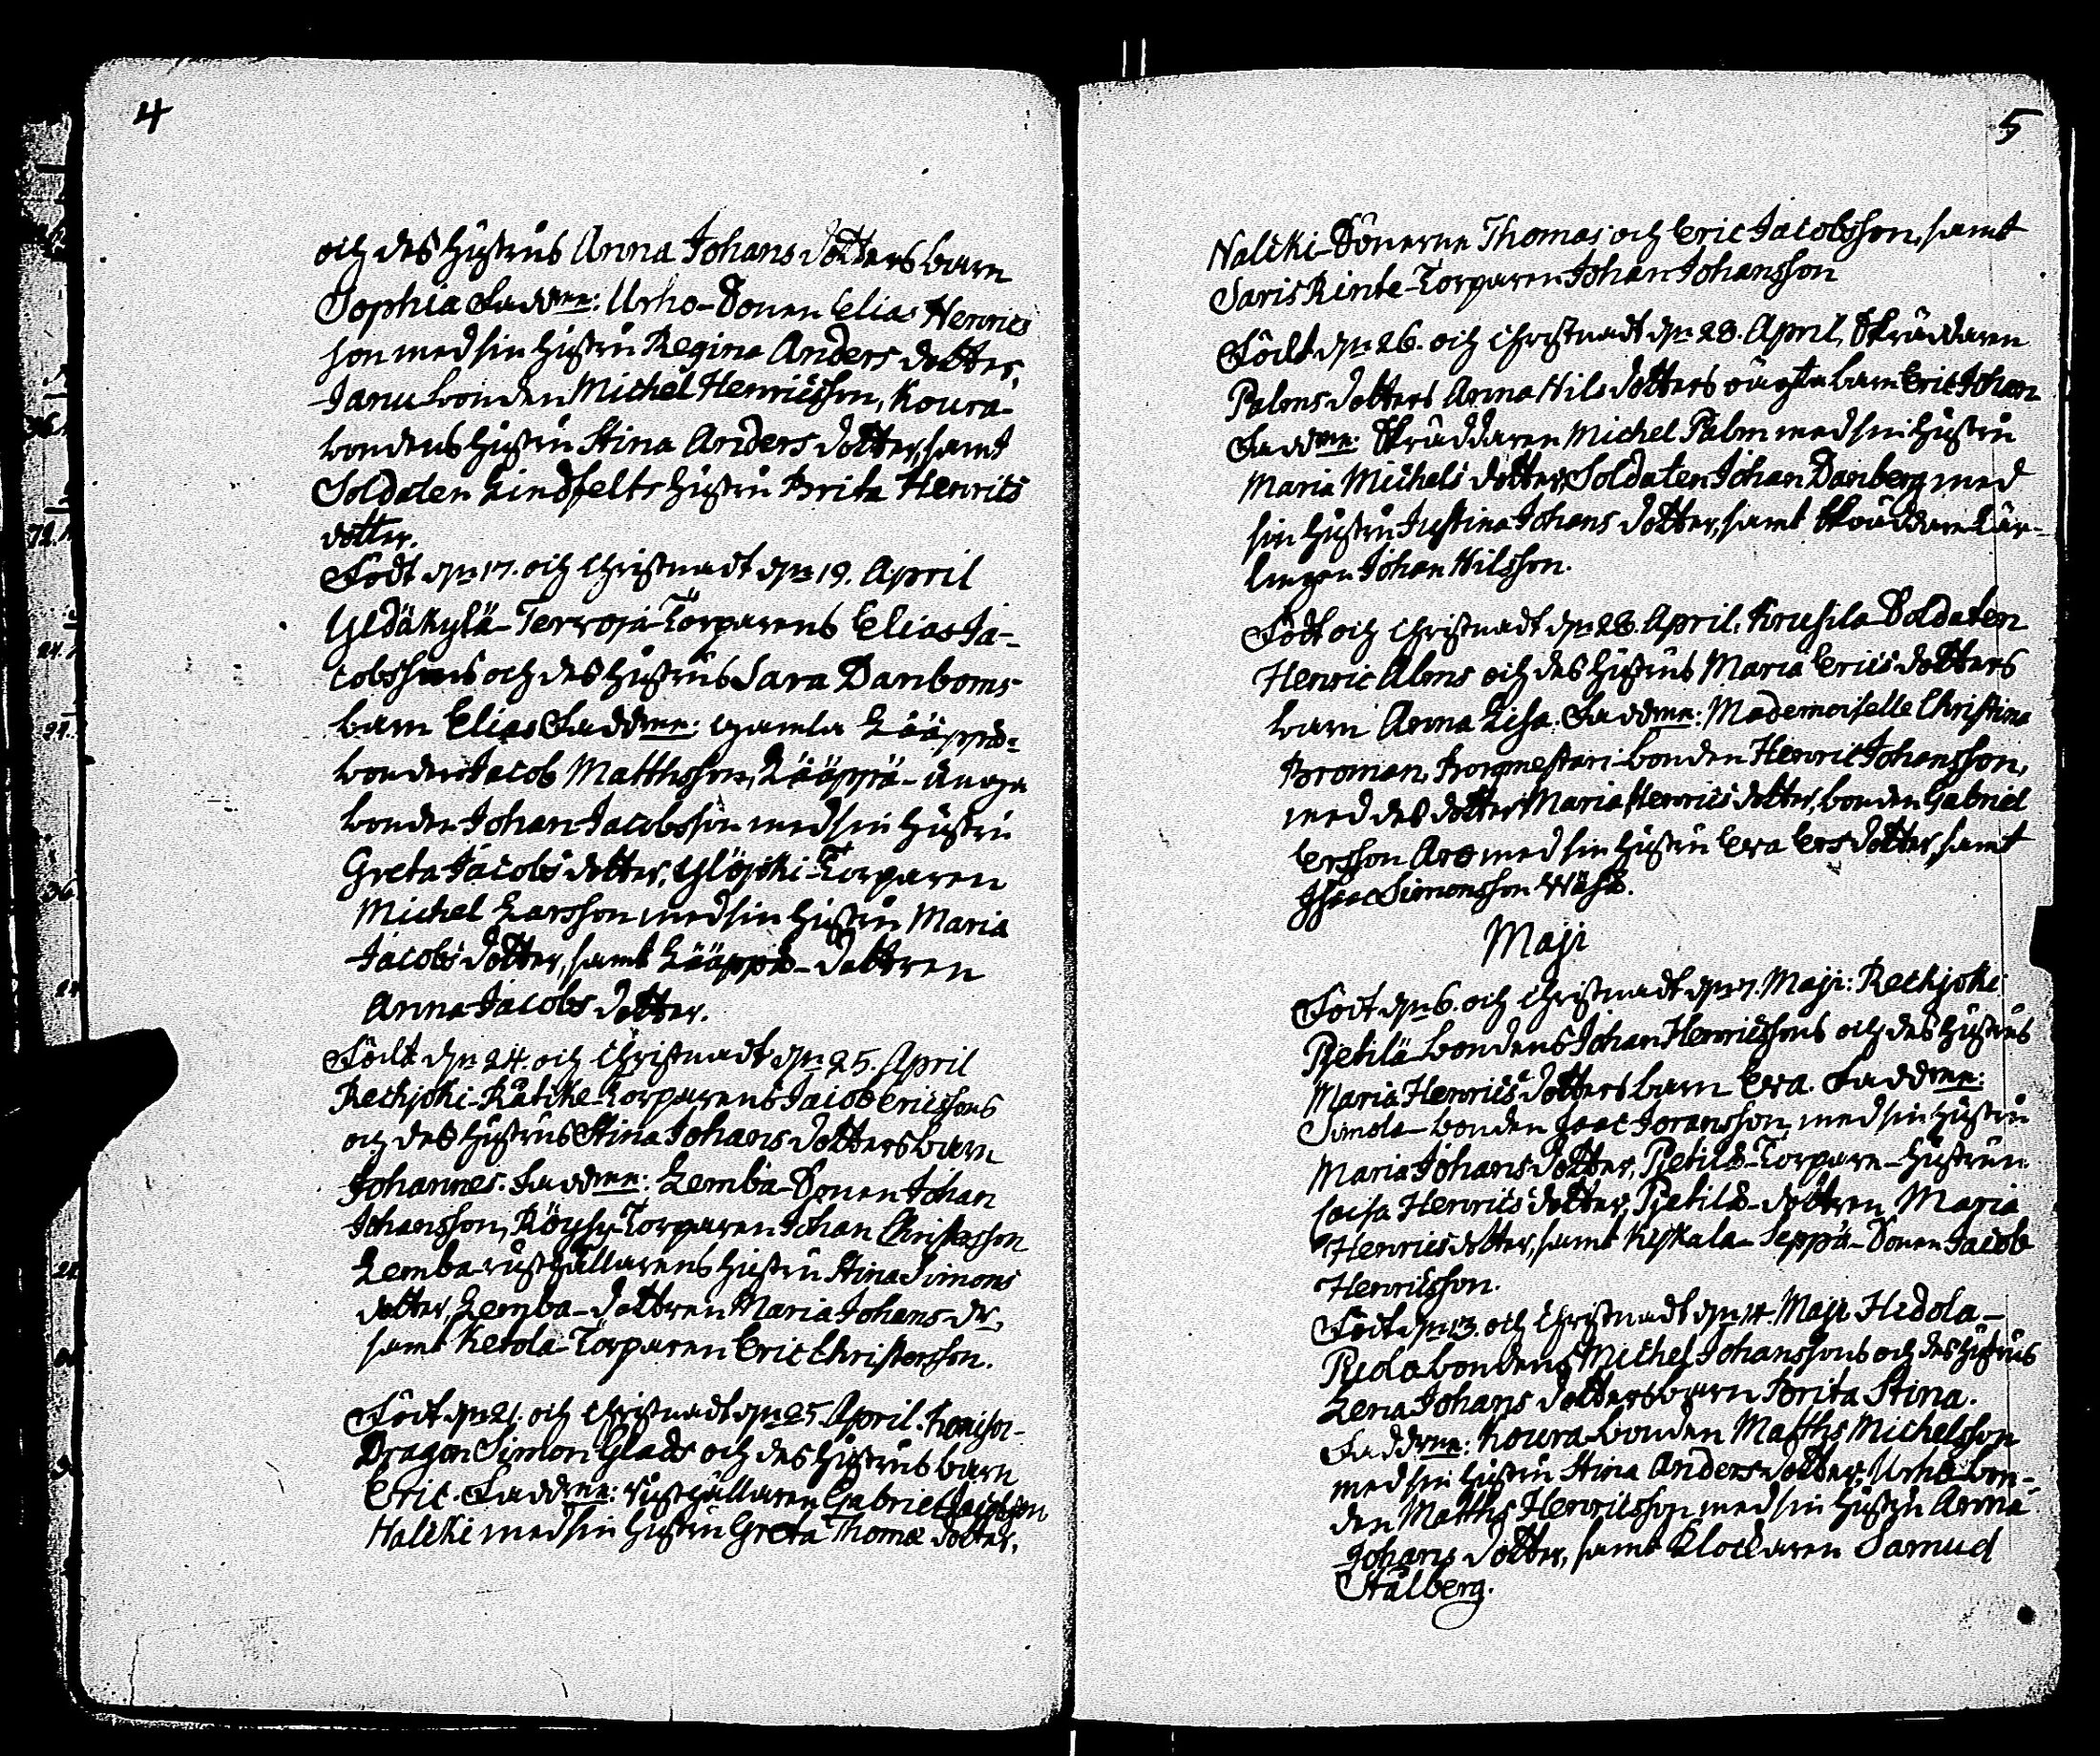 4
och des hustrus Anna Johans dotters barn
Sophia Faddrar: Urho-Sonen Elias Henrics
son med sin hustru Regina Anders dotter,
Janu bonden Michel Henricsson, Koura-
bondens hustru Stina Anders dotter, samt
Soldaten Lindfelts hustru Brita Henrics
dotter.
Född dn 17. och Christnadt dn 19. April
Yldäkylä-Terroja-Torparens Elias Ja-
cobssons och des hustrus Sara Danboms
barn Elias Faddrar: gamla Lääppä-
bonden Jacob Matthsson, Lääppä-unga
bonden Johan Jacobsson med sin hustru
Greta Jacobs dotter, Ylöjoki-Torparen
Michel Larsson med sin hustru Maria
Jacobs dotter, samt Lääppä-dottren
Anna Jacobs dotter.
Född dn 24. och Christnadt dn 25. April
Reckjoki-Rätike-Torparens Jacob Ericssons
och des hustrus Stina Johans dotters barn
Johannes. Faddrar: Lemba-Sonen Johan
Johansson, Röysy-Torparen Johan Christersson
Lemba-rusthållarens hustru Stina Simons
dotter, Lemba-dottren Maria Johans-dr,
samt Ketola-Torparen Eric Christersson.
Född dn 21. och Christnadt dn 25. April.
Dragon Simon Glads och des hustrus barn
Eric. Faddrar: rusthållaren Gabriel Jacobsson
Nalcki med sin hustru Greta Thomæ dotter,
5
Nalcki-Sönerne Thomas och Eric Jacobsson, samt
Saris Rinte-Torparen Johan Johansson
Född dn 26. och Christnadt dn 28. April, Skräddaren
Palms dotters Anna Nils dotters oäagta barn Eric Johan
Faddrar: Skräddaren Michel Palm med sin hustru
Maria Michels dotter, Soldaten Johan Danberg med
sin hustru Justina Johans dotter, samt Skräddare Lär-
lingen Johan Nilsson.
Född och Christnadt dn 28. April: Krusila-Soldaten
Henric Alms och des hustrus Maria Erics dotters
barn Anna Lisa. Faddrar: Mademoiselle Christina
Broman, Borgmestari-bonden Henric Johansson,
med des dotter Maria Henrics dotter, bonden Gabriel
Ersson Aro med sin hustru Eva Ers dotter, samt
Isaac Simonsson
Maji
Född dn 6. och Christnadt dn 7. Maji: Reckjoki
Pietilä bondens Johan Henricssons och des hustrus
Maria Henrics dotters barn Eva. Faddrar:
Simola-bonden Isac Joransson, med sin hustru
Maria Johans dotter, Pietilä-Torpare-hustrun
Caisa Henrics dotter, Pietilä-dottren Maria
Henrics dotter, samt Keskala-Seppä-Sonen Jacob
Henricsson.
Född dn 13. och Christnadt dn 14. Maji Hidola-
bondens Michel Johanssons och des hustrus
Lena Johans dotters barn Brita Stina.
Faddrar: Koura-bonden Matths Michelsson
med sin hustru Stina Anders dotter, Urho bon-
den Matths Henricsson med sin hustru Anna
Johans dotter, samt Klockaren Samuel
Stålberg.